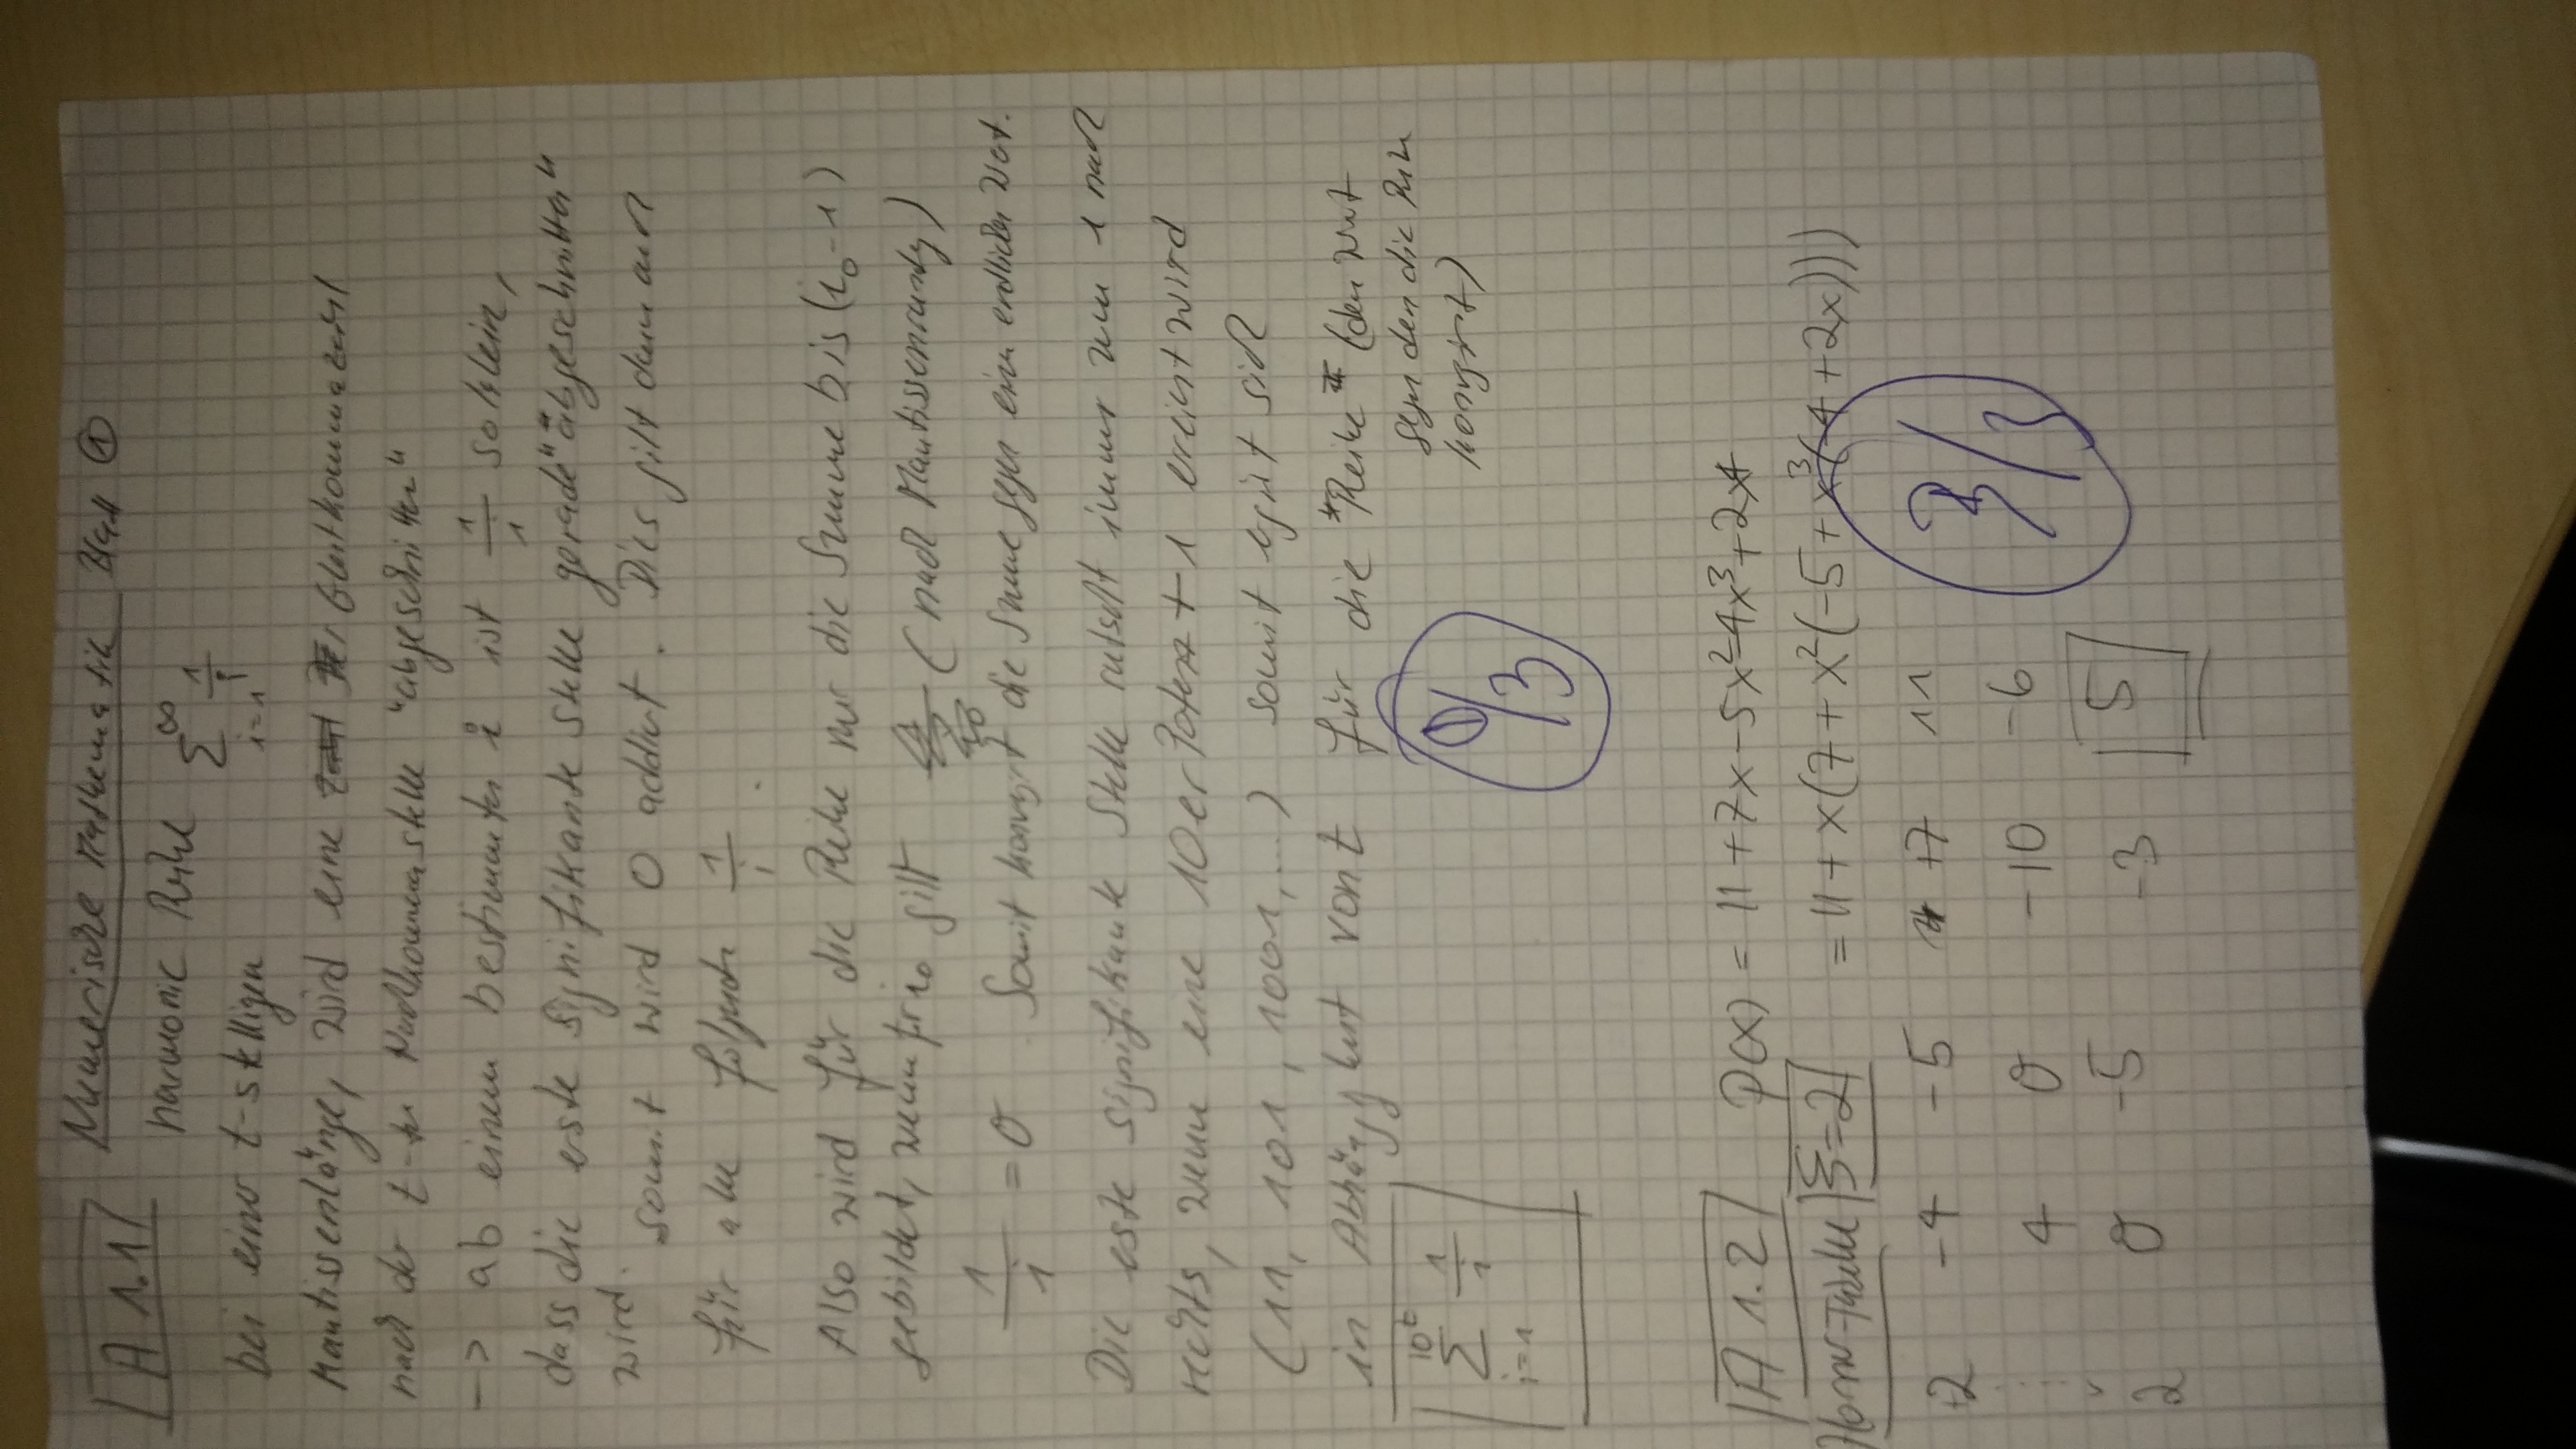 Numerische Mathematik Blatt ①
A 1.1
harmonic Reihe ∑_{i=1}^{∞} 1/i
bei einer t-stelligen
Mantissenlänge, wird eine Gleitkommazahl
nach der t-ten Nachkommastelle "abgeschnitten"
-> ab einem bestimmten i ist 1/i so klein,
dass die erste signifikante Stelle gerade "abgeschnitten"
wird.
somit wird 0 addiert. Dies gilt dann auch
für alle folgende 1/i.
Also wird für die Reihe nur die Summe bis (i₀-1)
gebildet, wenn für i₀ gilt (nach Mantissenrundg)
1/i = 0 Somit konvgirt die Summe gegen einen endlichen Wert.
Die erste signifikante Stelle rutscht immer um 1 nach
rechts, wenn eine 10er Potenz + 1 erreicht wird
(11, 101, 1001, ...) somit ergibt sich
in Abhängigkeit von t für die "Reihe" (den Wert
gegen den die Reihe
konvgirt)
∑_{i=1}^{10^t} 1/i
0/3
A 1.2 P(x) = 11 + 7x - 5x² - 4x³ + 2x4
Horner-Tabelle ξ=2 = 11 + x(7 + x²(-5 + x³(-4 + 2x)))
+2 -4 -5 +7 11
4 0 -10 -6
2 0 -5 -3 5
3/3